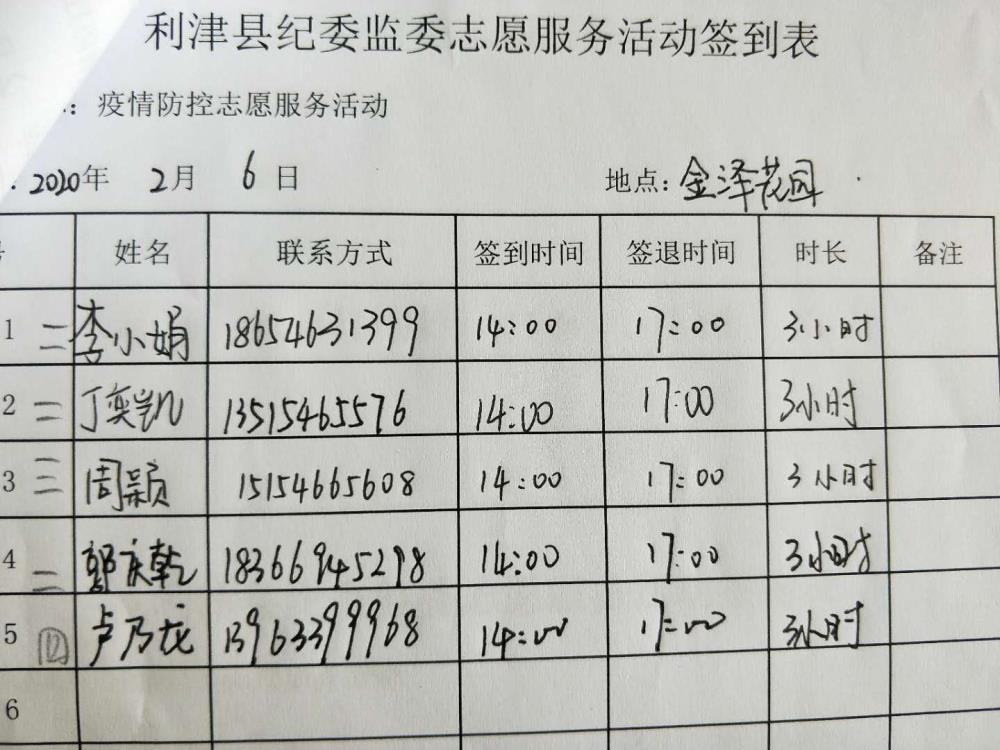 利津县纪委监委志愿服务活动签到表
：疫情防控志愿服务活动
2020年 2月 6日 地点：金泽花园
姓名 联系方式 签到时间 签退时间 时长 备注
1 二 李小娟 18654631399 14:00 17:00 3小时
2 二 丁奕凯 13515465576 14:00 17:00 3小时
3 周颖 15154665608 14:00 17:00 3小时
4 二 郭庆乾 18366945298 14:00 17:00 3小时
5 四 卢乃龙 13963399968 14:00 17:00 3小时
6